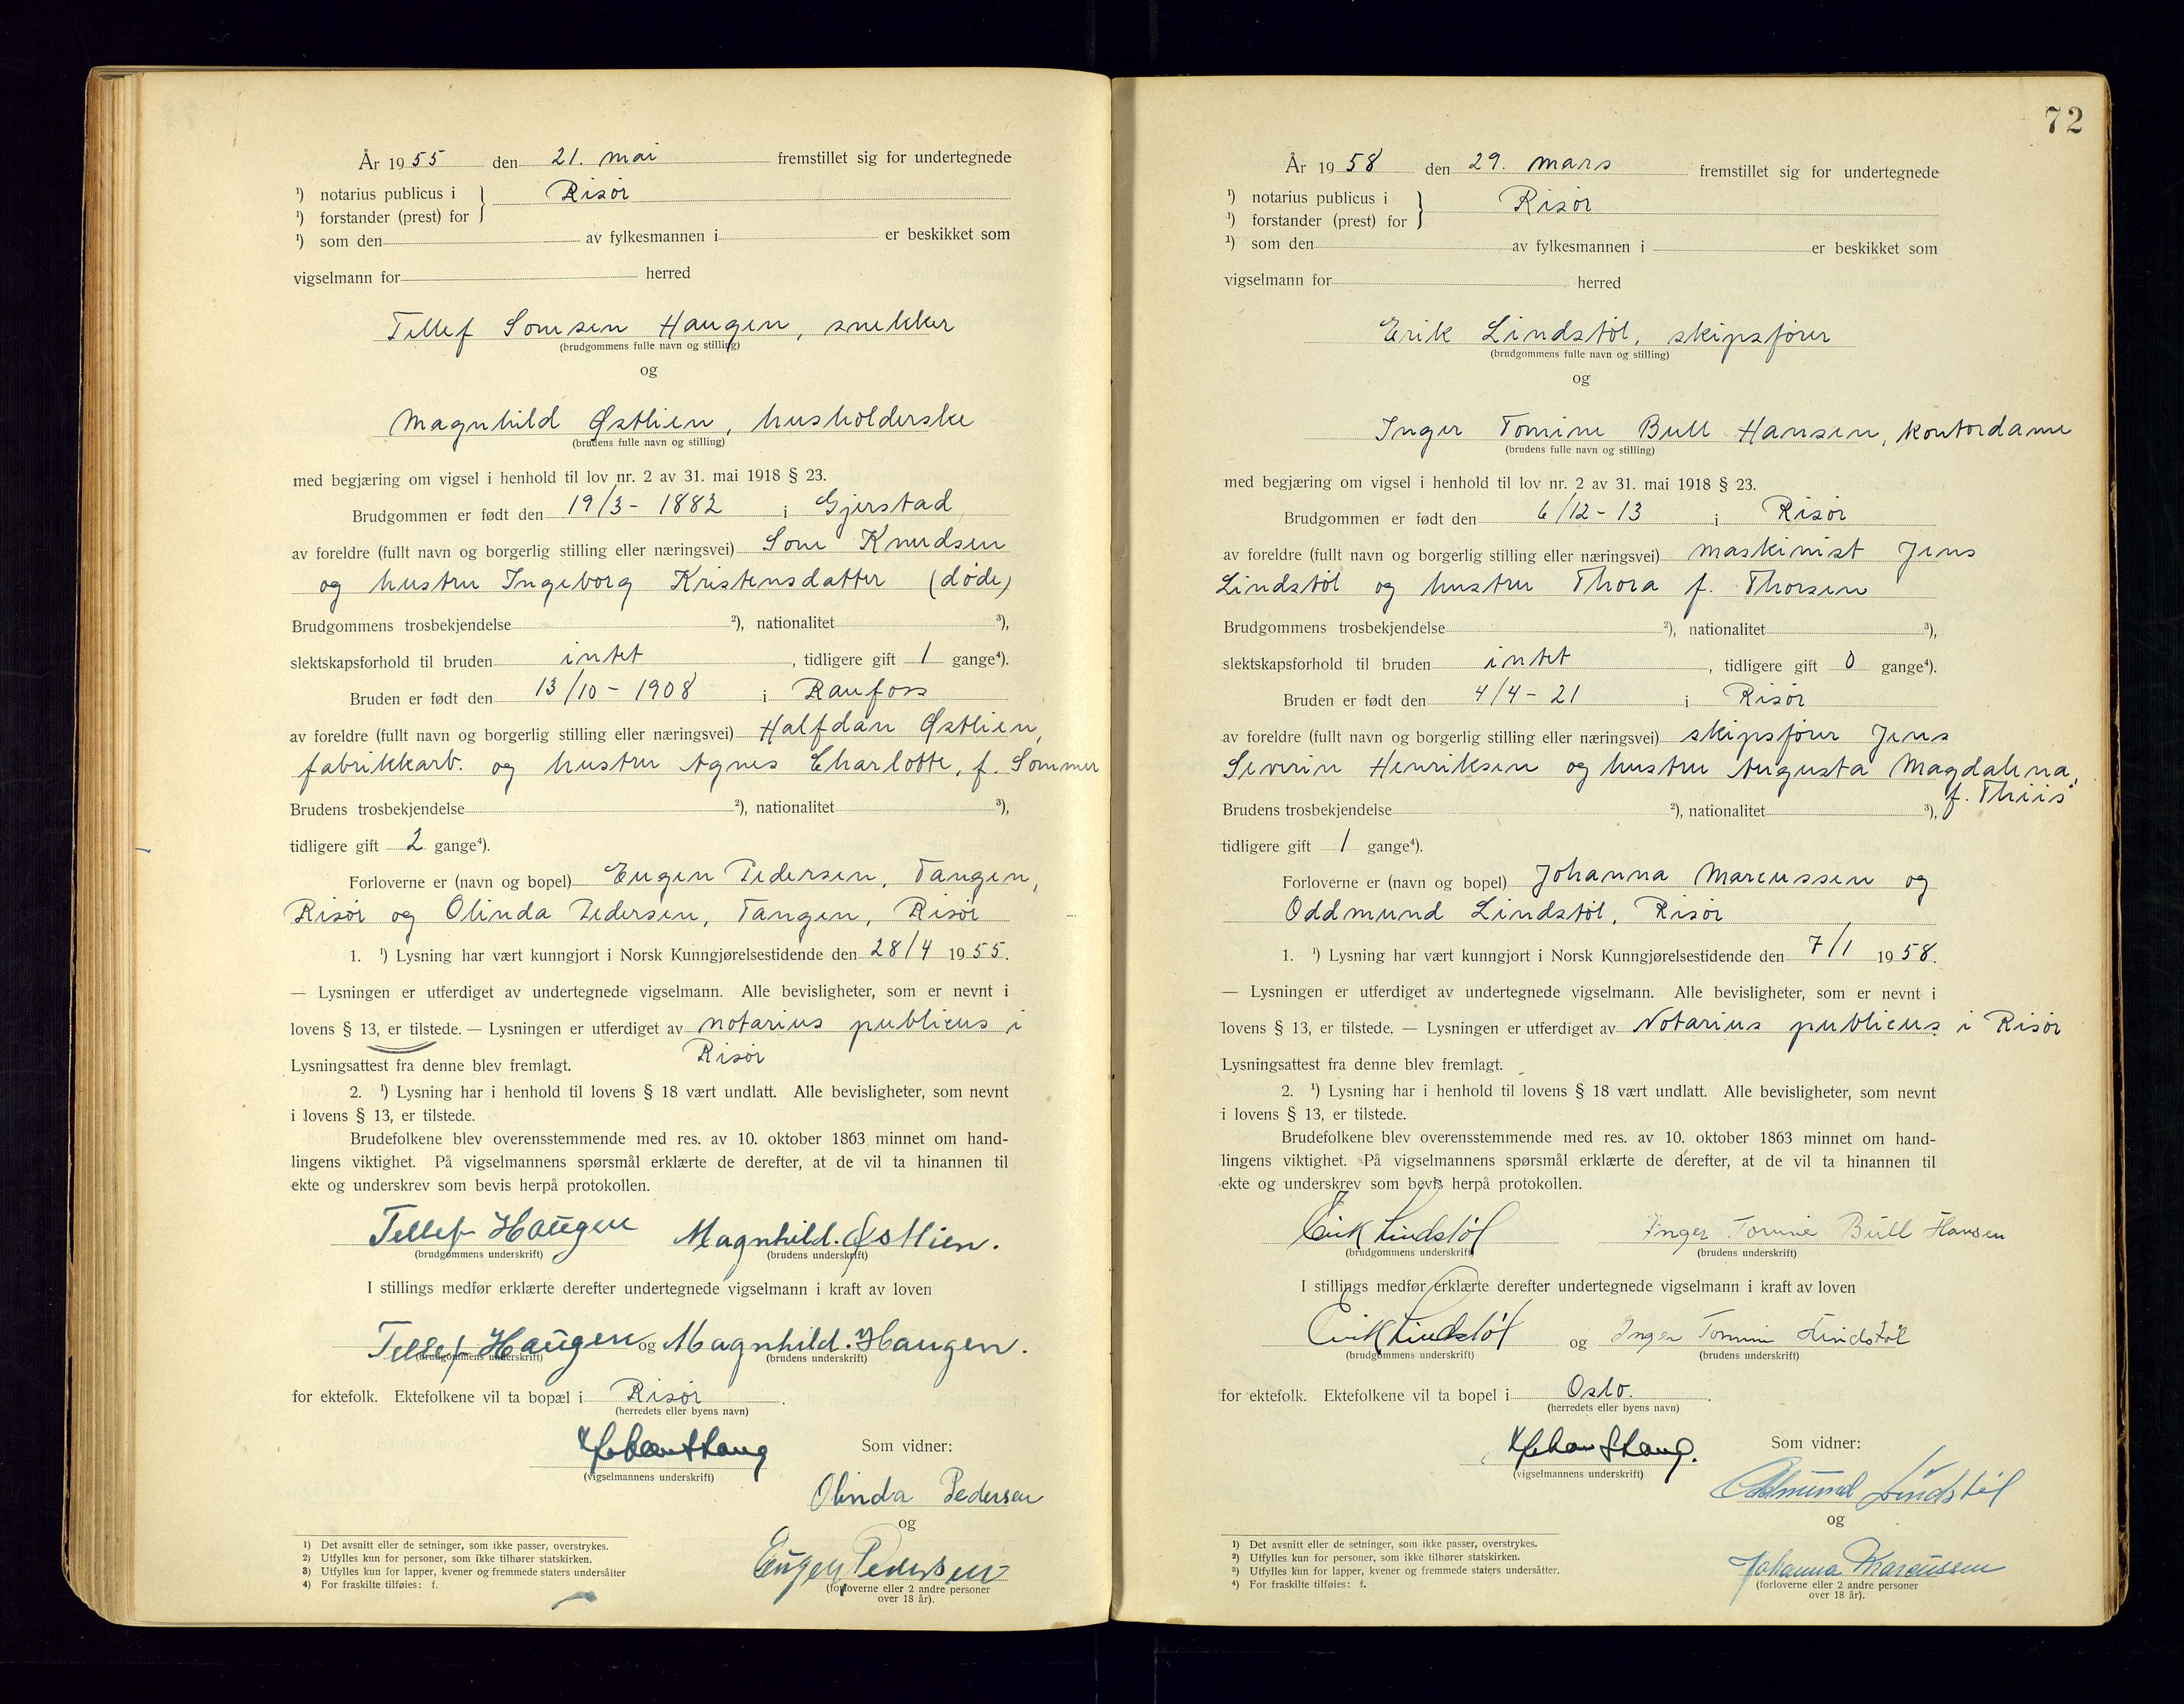 År 1955 den 21. mai fremstillet sig for undertegnede
¹) notarius publicus i } Risør
¹) forstander (prest) for
¹) som den av fylkesmannen i er beskikket som
vigselmann for herred
Tellef Somsen Haugen, snekker
(brudgommens fulle navn og stilling)
og
Magnhild Østlien, husholderske
(brudens fulle navn og stilling)
med begjæring om vigsel i henhold til lov nr. 2 av 31. mai 1918 § 23.
Brudgommen er født den 19/3 - 1882 i Gjerstad
av foreldre (fullt navn og borgerlig stilling eller næringsvei) Som Knudsen
og hustru Ingeborg Kristensdatter (døde)
Brudgommens trosbekjendelse ²), nationalitet ³),
slektskapsforhold til bruden intet, tidligere gift 1 gange⁴).
Bruden er født den 13/10 - 1908 i Raufoss
av foreldre (fullt navn og borgerlig stilling eller næringsvei) Halfdan Østlien,
fabrikkarb. og hustru Agnes Charlotte, f. Sommer
Brudens trosbekjendelse ²), nationalitet ³),
tidligere gift 2 gange⁴).
Forloverne er (navn og bopel) Eugen Pedersen, Tangen,
Risør og Olinda Pedersen, Tangen, Risør
1. ¹) Lysning har vært kunngjort i Norsk Kunngjørelsestidende den 28/4 1955.
— Lysningen er utferdiget av undertegnede vigselmann. Alle bevisligheter, som er nevnt i
lovens § 13, er tilstede. — Lysningen er utferdiget av notarius publicus i
Risør
Lysningsattest fra denne blev fremlagt.
2. ¹) Lysning har i henhold til lovens § 18 vært undlatt. Alle bevisligheter, som nevnt
i lovens § 13, er tilstede.
Brudefolkene blev overensstemmende med res. av 10. oktober 1863 minnet om hand-
lingens viktighet. På vigselmannens spørsmål erklærte de derefter, at de vil ta hinannen til
ekte og underskrev som bevis herpå protokollen.
Tellef Haugen Magnhild. Østlien.
(brudgommens underskrift) (brudens underskrift)
I stillings medfør erklærte derefter undertegnede vigselmann i kraft av loven
Tellef Haugen og Magnhild. Haugen.
(brudgommens underskrift) (brudens underskrift)
for ektefolk. Ektefolkene vil ta bopæl i Risør.
(herredets eller byens navn)
Som vidner:
(vigselmannens underskrift)
Olinda Pedersen
og
Eugen Pedersen
(forloverne eller 2 andre personer
over 18 år).
¹) Det avsnitt eller de setninger, som ikke passer, overstrykes.
²) Utfylles kun for personer, som ikke tilhører statskirken.
³) Utfylles kun for lapper, kvener og fremmede staters undersåtter
⁴) For fraskilte tilføies: f.
72
År 1958 den 29. mars fremstillet sig for undertegnede
¹) notarius publicus i } Risør
¹) forstander (prest) for
¹) som den av fylkesmannen i er beskikket som
vigselmann for herred
Erik Lindstøl, skipsfører
(brudgommens fulle navn og stilling)
og
Inger Tomine Bull Hansen, kontordame
(brudens fulle navn og stilling)
med begjæring om vigsel i henhold til lov nr. 2 av 31. mai 1918 § 23.
Brudgommen er født den 6/12 - 13 i Risør
av foreldre (fullt navn og borgerlig stilling eller næringsvei) maskinist Jens
Lindstøl og hustru Thora f. Thorsen
Brudgommens trosbekjendelse ²), nationalitet ³),
slektskapsforhold til bruden intet, tidligere gift 0 gange⁴).
Bruden er født den 4/4 - 21 i Risør
av foreldre (fullt navn og borgerlig stilling eller næringsvei) skipsfører Jens
Severin Henriksen og hustru Augusta Magdalena,
f. Thiis
Brudens trosbekjendelse ²), nationalitet ³),
tidligere gift 1 gange⁴).
Forloverne er (navn og bopel) Johanna Marcussen og
Oddmund Lindstøl, Risør
1. ¹) Lysning har vært kunngjort i Norsk Kunngjørelsestidende den 7/1 1958.
— Lysningen er utferdiget av undertegnede vigselmann. Alle bevisligheter, som er nevnt i
lovens § 13, er tilstede. — Lysningen er utferdiget av Notarius publicus i Risør
Lysningsattest fra denne blev fremlagt.
2. ¹) Lysning har i henhold til lovens § 18 vært undlatt. Alle bevisligheter, som nevnt
i lovens § 13, er tilstede.
Brudefolkene blev overensstemmende med res. av 10. oktober 1863 minnet om hand-
lingens viktighet. På vigselmannens spørsmål erklærte de derefter, at de vil ta hinannen til
ekte og underskrev som bevis herpå protokollen.
Erik Lindstøl Inger Tomine Bull Hansen
(brudgommens underskrift) (brudens underskrift)
I stillings medfør erklærte derefter undertegnede vigselmann i kraft av loven
Erik Lindstøl og Inger Tomine Lindstøl
(brudgommens underskrift) (brudens underskrift)
for ektefolk. Ektefolkene vil ta bopel i Oslo.
(herredets eller byens navn)
Som vidner:
(vigselmannens underskrift)
Oddmund Lindstøl
og
Johanna Marcussen
(forloverne eller 2 andre personer
over 18 år).
¹) Det avsnitt eller de setninger, som ikke passer, overstrykes.
²) Utfylles kun for personer, som ikke tilhører statskirken.
³) Utfylles kun for lapper, kvener og fremmede staters undersåtter.
⁴) For fraskilte tilføies: f.